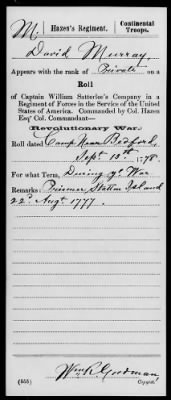 M. Hazen's Regiment. Continental Troops.
David Murray
Appears with the rank of Private on a
Roll
of Captain William Satterlee's Company in a
Regiment of Forces in the Service of the United
States of America. Commanded by Col. Hazen
Esqr Col. Commandant—
Revolutionary War.
Roll dated Camp Near Bedford,
Sept 10th, 1778.
For what Term, During ye War
Remarks: Prisoner Statten Island
22d Augt. 1777.
Wm R Goodman
(555) Copyist.